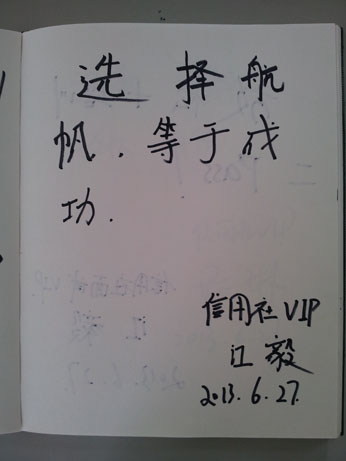 选择航
帆.等于成
功.
信用社VIP
江毅
2013.6.27.